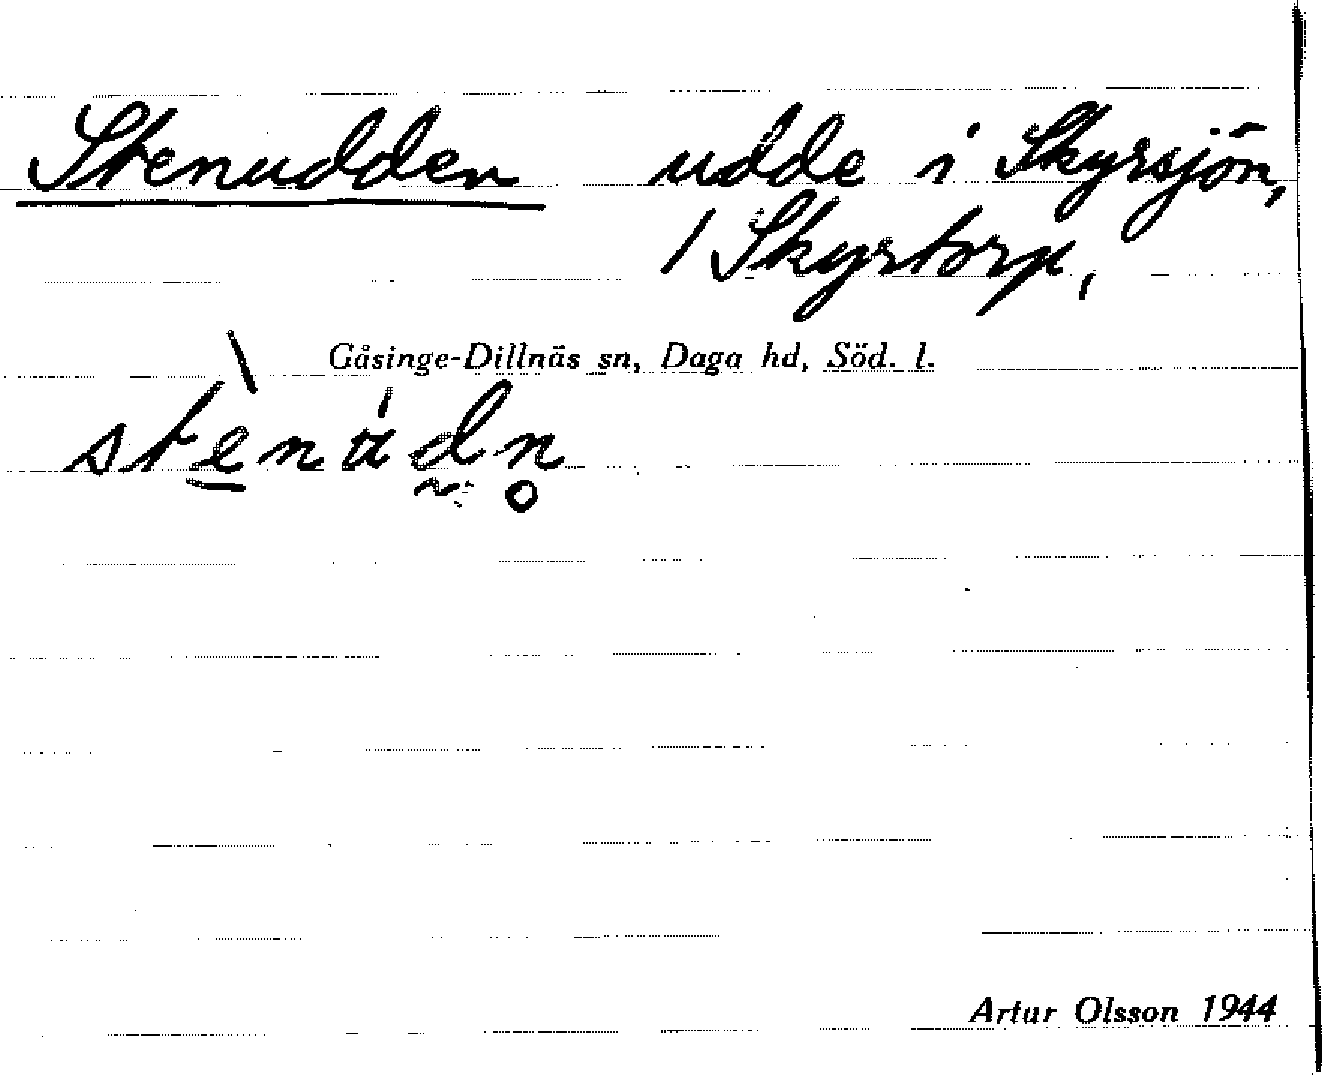 Stenudden udde i Skyrsjön,
/ Skyrtorp,
Gåsinge-Dillnäs sn, Daga hd, Söd. l.
stè̱nádn̥
Artur Olsson 1944